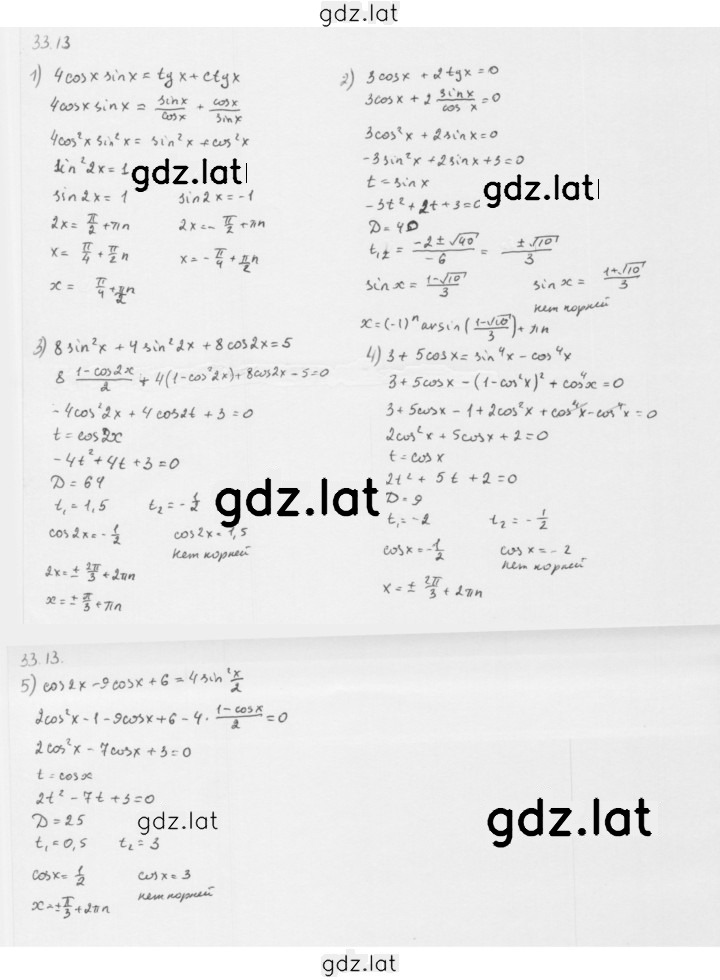 gdz.lat
33.13
1) 4cosx sinx = tgx + ctgx
4cosx sinx = sinx/cosx + cosx/sinx
4cos²x sin²x = sin²x + cos²x
sin²2x = 1
gdz.lat
sin2x = 1 sin2x = -1
2x = π/2 + πn 2x = -π/2 + πn
x = π/4 + π/2 n x = -π/4 + π/2 n
x = π/4 + π/2 n
2) 3cosx + 2tgx = 0
3cosx + 2 sinx/cosx = 0
3cos²x + 2sinx = 0
-3sin²x + 2sinx + 3 = 0
t = sinx
gdz.lat
-3t² + 2t + 3 = 0
D = 40
t₁,₂ = (-2 ± √40)/-6 = (± √10)/3
sinx = (1-√10)/3 sinx = (1+√10)/3
нет корней
x = (-1)ⁿ arsin((1-√10)/3) + πn
3) 8sin²x + 4sin²2x + 8cos2x = 5
8 (1-cos2x)/2 + 4(1-cos²2x) + 8cos2x - 5 = 0
-4cos²2x + 4cos2t + 3 = 0
t = cos2x
-4t² + 4t + 3 = 0
D = 64
t₁ = 1,5 t₂ = -1/2
gdz.lat
cos2x = -1/2 cos2x = 1,5
нет корней
2x = ± 2π/3 + 2πn
x = ± π/3 + πn
4) 3 + 5cosx = sin⁴x - cos⁴x
3 + 5cosx - (1-cos²x)² + cos⁴x = 0
3 + 5cosx - 1 + 2cos²x + cos⁴x - cos⁴x = 0
2cos²x + 5cosx + 2 = 0
t = cosx
2t² + 5t + 2 = 0
D = 9
t₁ = -2 t₂ = -1/2
cosx = -1/2 cosx = -2
нет корней
x = ± 2π/3 + 2πn
33.13.
5) cos2x - 9cosx + 6 = 4sin²x/2
2cos²x - 1 - 9cosx + 6 - 4 · (1-cosx)/2 = 0
2cos²x - 7cosx + 3 = 0
t = cosx
2t² - 7t + 3 = 0
D = 25
gdz.lat
gdz.lat
t₁ = 0,5 t₂ = 3
cosx = 1/2 cosx = 3
нет корней
x = ± π/3 + 2πn
gdz.lat